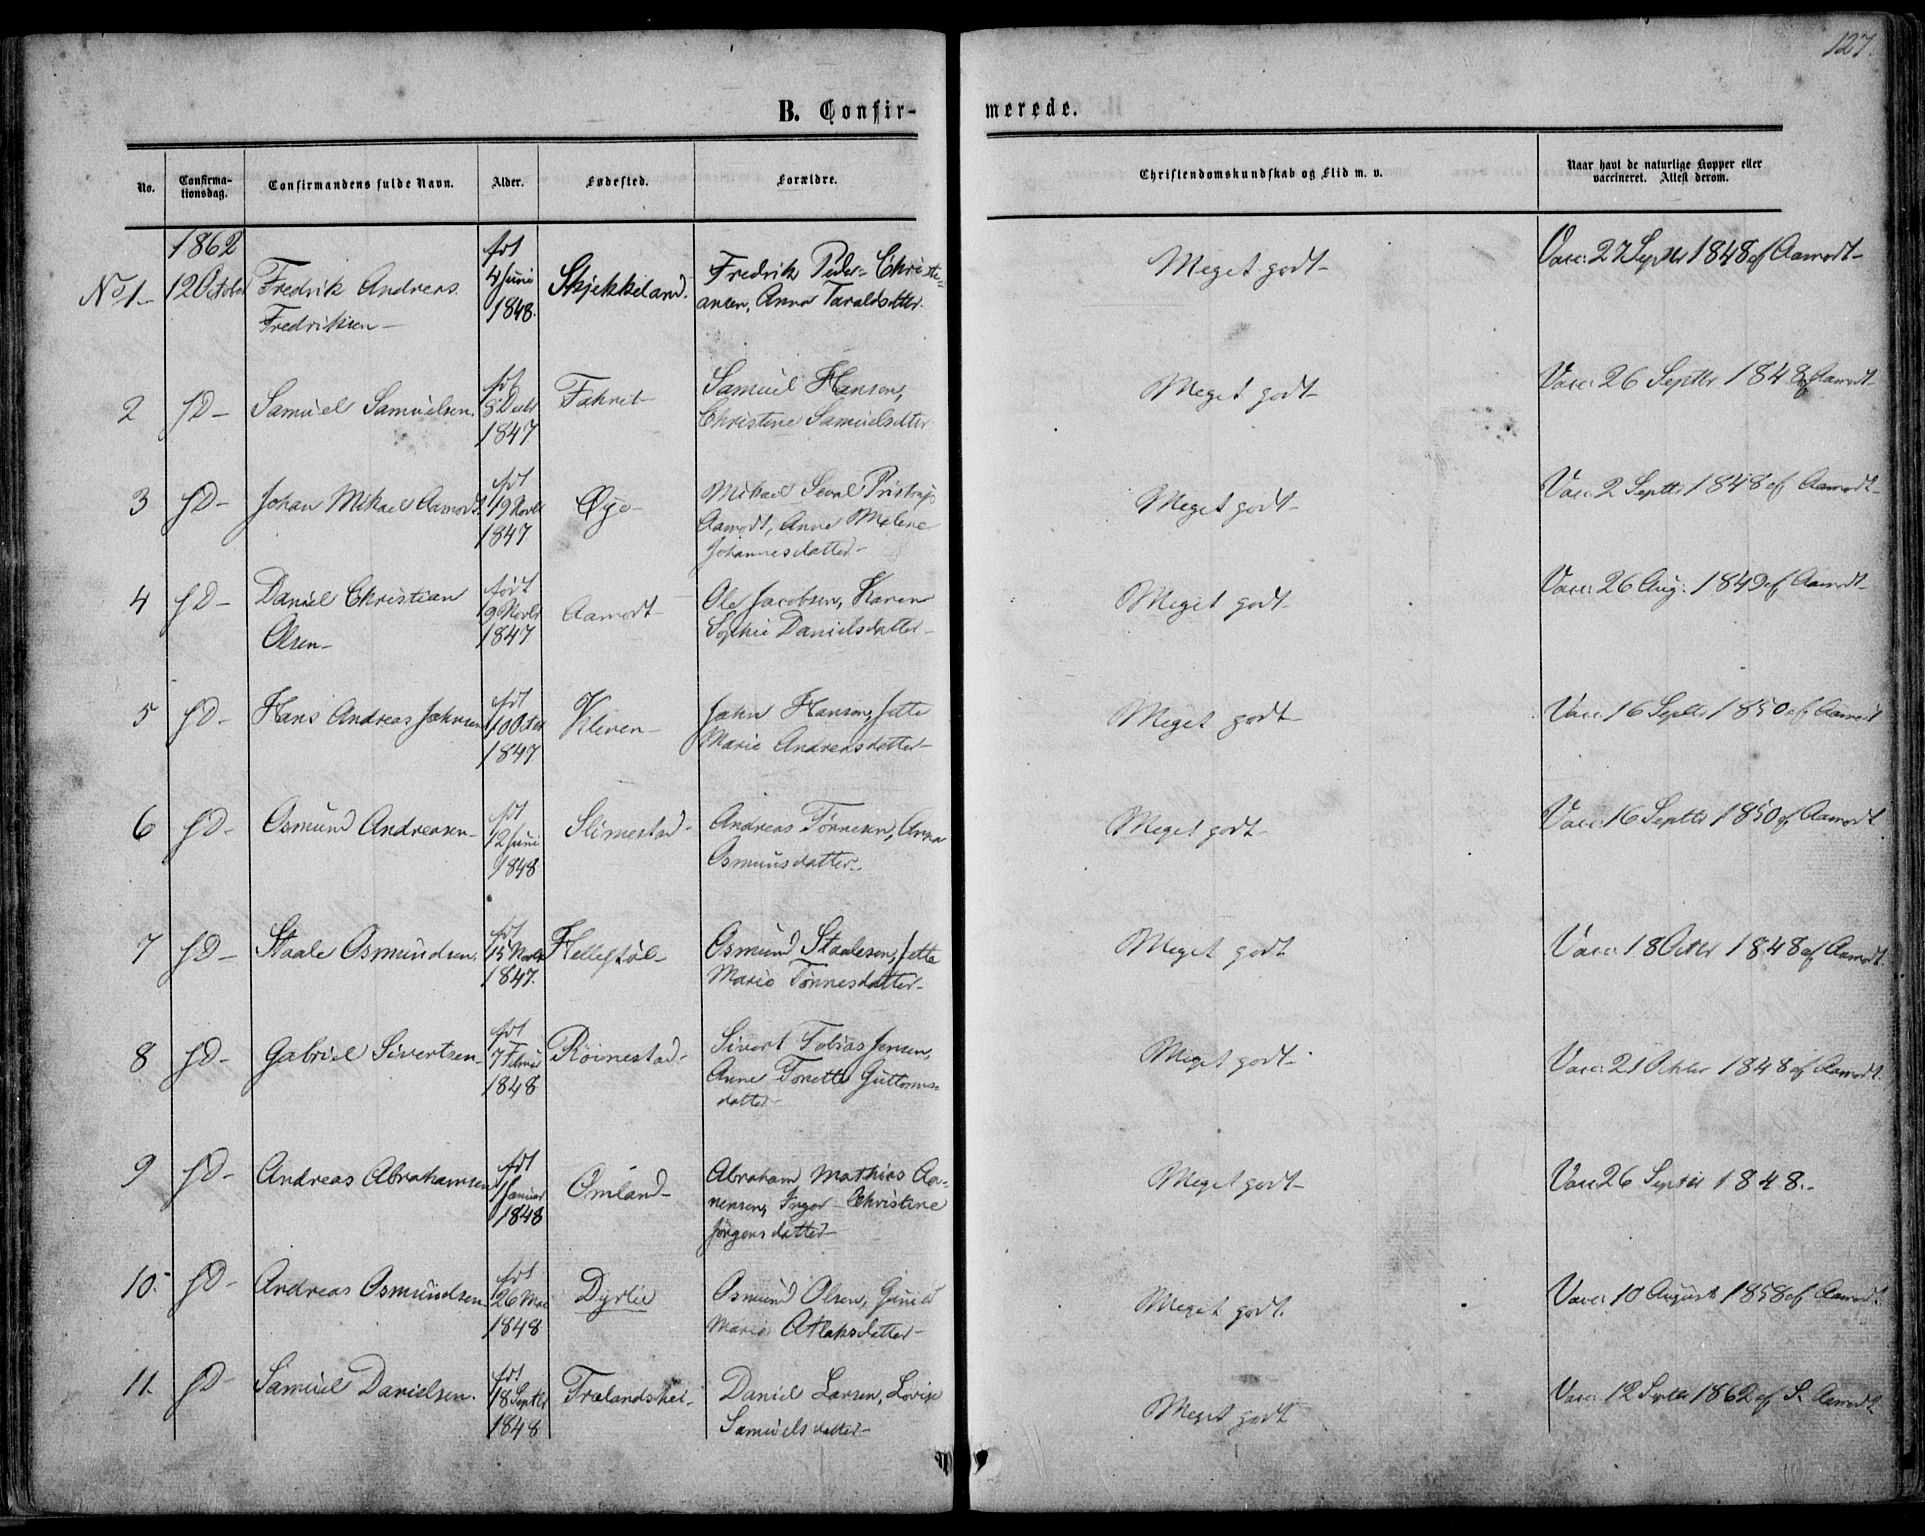 127.
B. Confir-merede.
No. Confirmationsdag. Confirmandens fulde Navn. Alder. Fødested. Forældre. Christendomskundskab og Flid m. v. Naar havt de naturlige Kopper eller vaccineret. Attest derom.
1862
No 1 12 October Fredrik Andreas Fredriksen fdt 4 Juni 1848. Skjekkeland. Fredrik Peder Christiansen, Anna Taraldsdtter. Meget godt Vacc: 27 Septbr 1848 af Aamodt
2 ſD Samuel Samuelsen. fdt 8 Decbr 1847 Fahret Samuel Hansen, Christine Samuelsdtter Meget godt Vacc: 26 Septbr 1848 af Aamodt
3 ſD Johan Mikael Aamodt fdt 19 Novbr 1847 Øye Mikael Seval Aamodt, Anne Malene Johannesdatter Meget godt Vacc: 2 Septbr 1848 af Aamodt
4 ſD Daniel Christian Olsen født 9 Novbr 1847 Aamodt Ole Jacobsen, Karen Sophie Danielsdatter Meget godt Vacc: 26 Aug: 1849 af Aamodt
5 ſD Hans Andreas Jahnsen fdt 10 Octbr 1847 Kliven Jahn Hansen, Jette Marie Andreasdatter Meget godt Vacc: 16 Septbr 1850 af Aamodt
6 ſD Osmund Andreasen fdt 12 Juni 1848 Slimestad Andreas Tønnesen, Anna Osmunsdatter Meget godt Vacc: 16 Septbr 1850 af Aamodt
7 ſD Staale Osmundsen. fdt 15 Novbr 1847. Hellestøl Osmund Staalesen, Jette Marie Tønnesdatter Meget godt Vacc: 18 Octbr 1848 af Aamodt.
8 ſD Gabriel Sivertsen fdt 7 1848 Røinestad Sivert Tobias Jensen, Anne Tonette Guttormsdatter Meget godt Vacc: 21 Octbr 1848 af Aamodt.
9 ſD Andreas Abrahamsen fdt 1 Januar 1848 Omland Abraham Mathias Aanensen, Inger Christine Jörgensdatter Meget godt Vacc 26 Septbr 1848.
10. ſD Andreas Osmundsen fdt 26 Mai 1848 Dyrlie Osmund Olsen, Gunild Maria Atlaksdatter Meget godt. Vacc: 10 August 1858 af Aamodt.
11. ſD Samuel Danielsen. fdt 18 Septbr 1848 Frælandshei. Daniel Larsen, Lovise Samuelsdatter Meget godt Vacc: 12 Septbr 1862 af S. Aamodt.